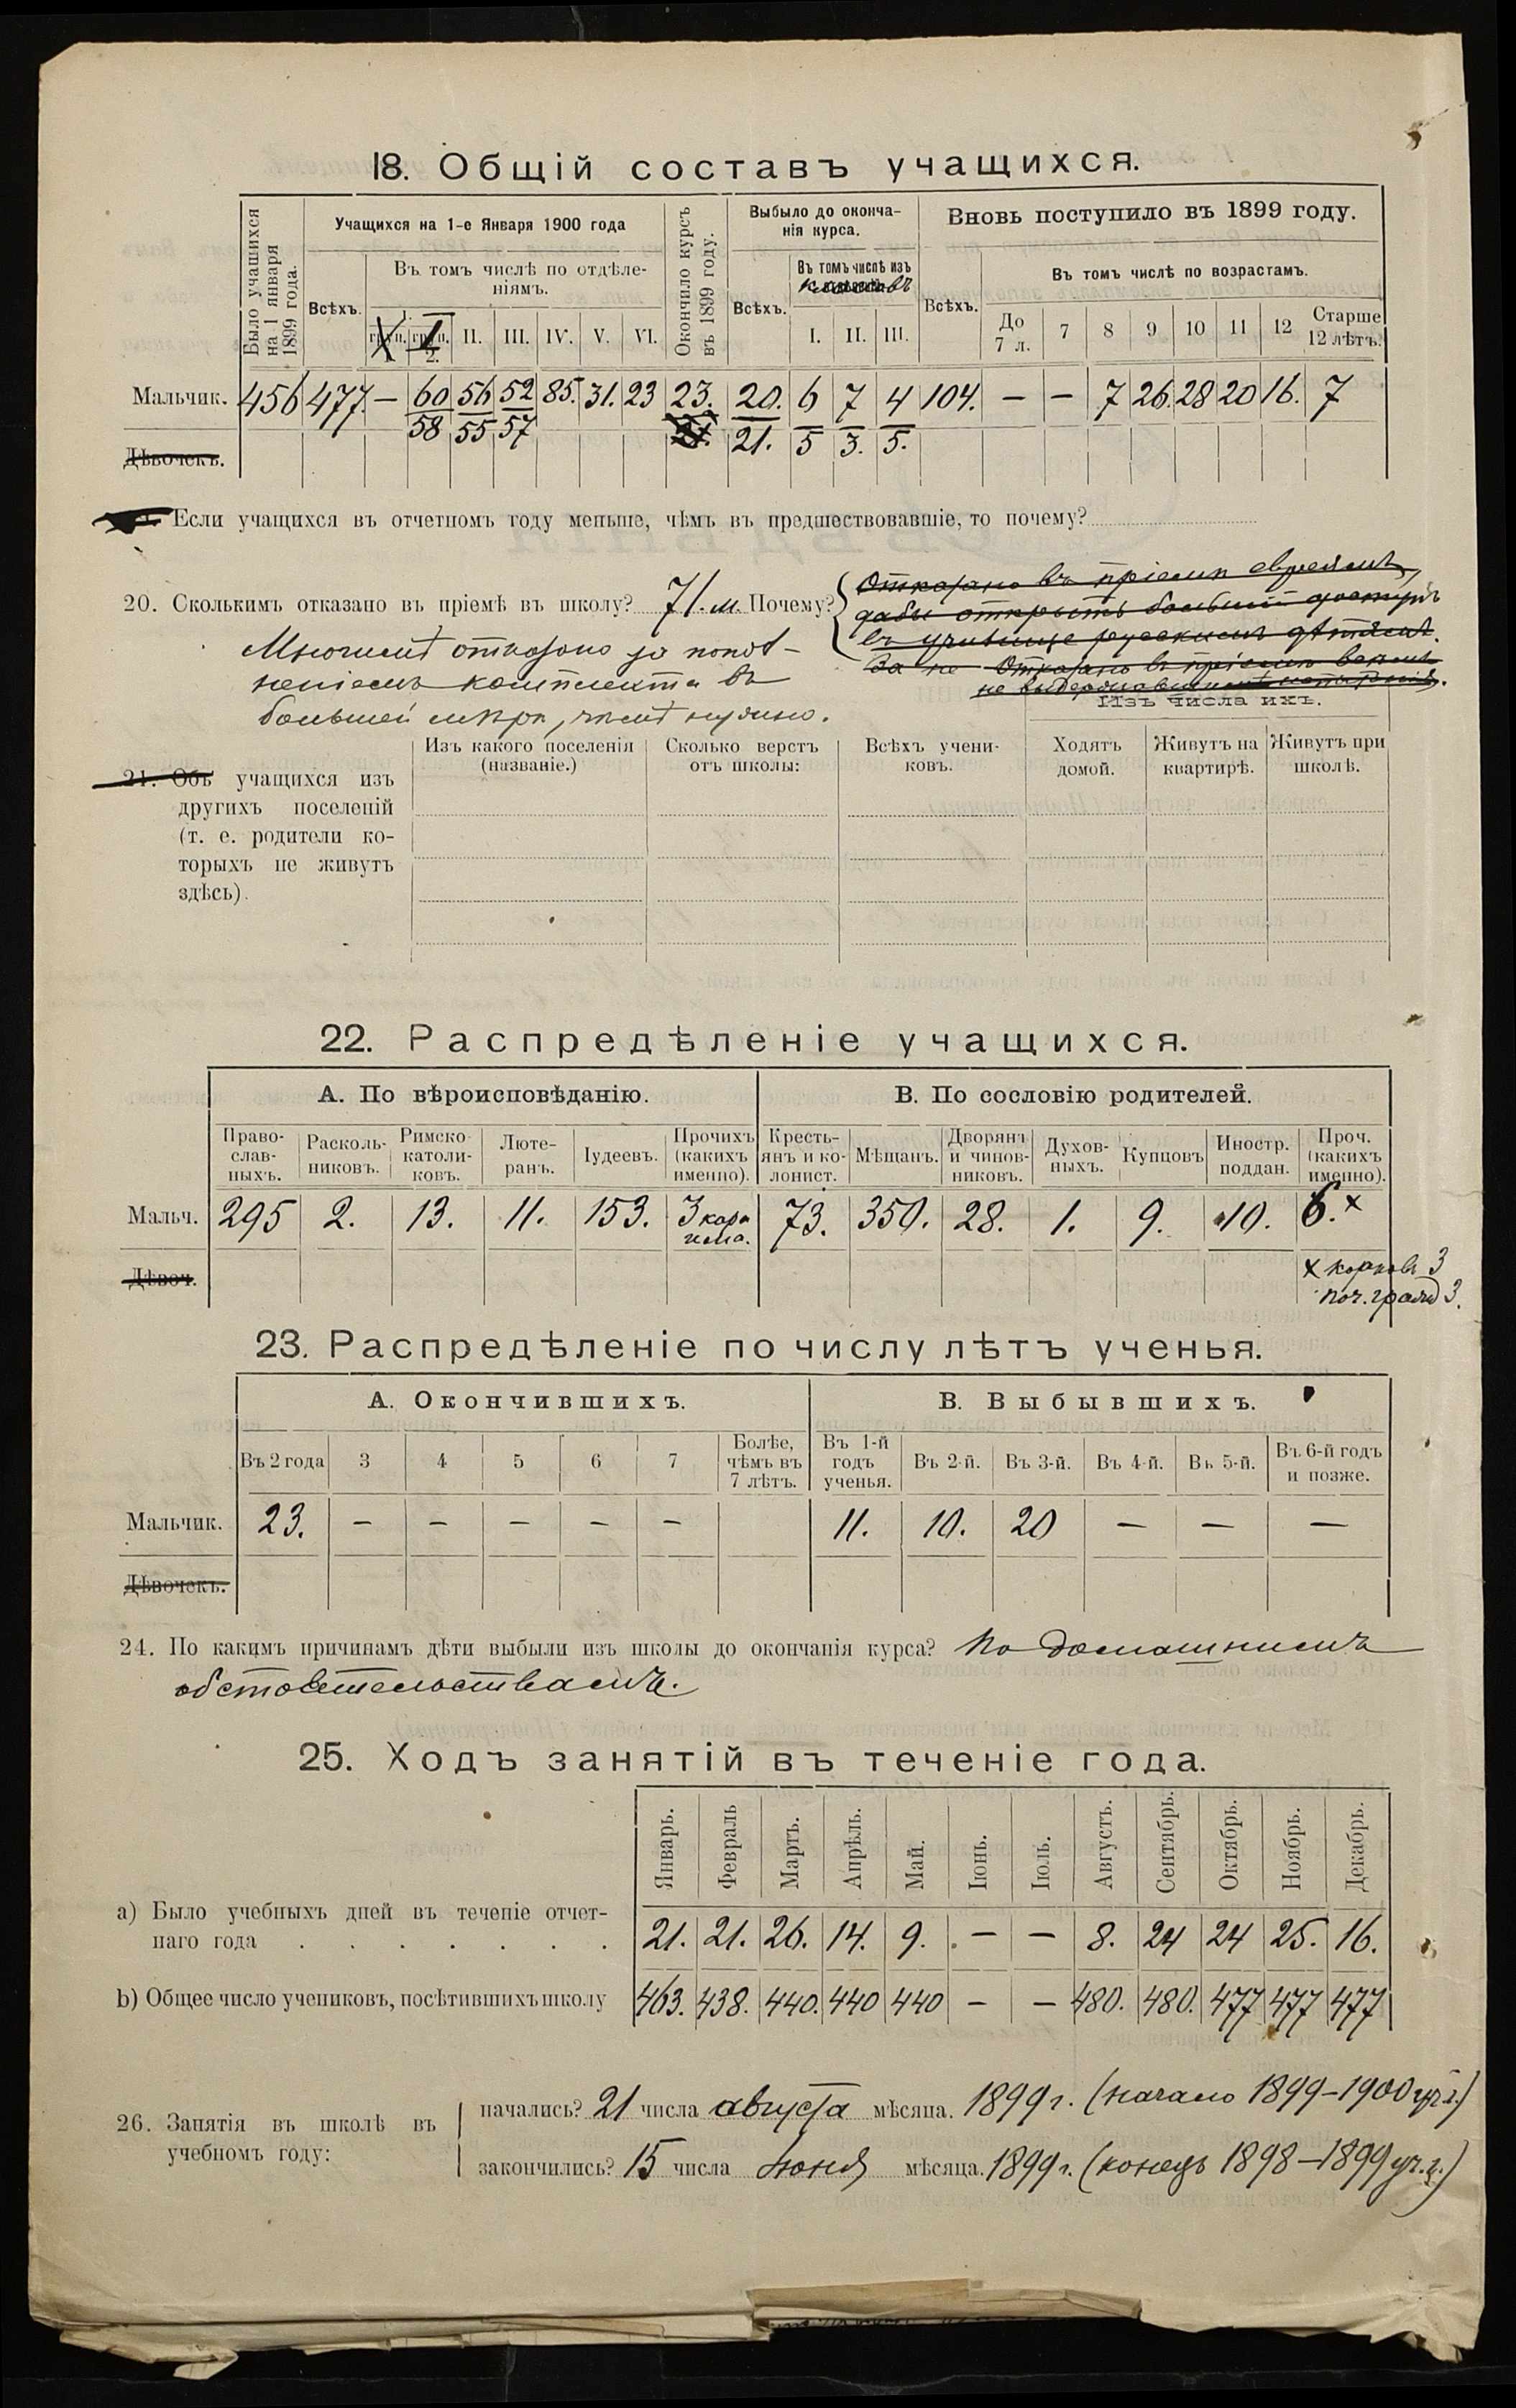 18. Общій составъ учащихся.
Было учащихся на 1 января 1899 года.
Учащихся на 1-е Января 1900 года
Всѣхъ.
Въ томъ числѣ по отдѣле-
ніямъ.
II. III. IV. V. VI.
Окончило курсъ въ 1899 году.
Выбыло до оконча-
нія курса.
Всѣхъ.
Въ томъ числѣ изъ
классовъ
I. II. III.
Вновь поступило въ 1899 году.
Всѣхъ.
Въ томъ числѣ по возрастамъ.
До 7 л. 7 8 9 10 11 12 Старше 12 лѣтъ.
Мальчик. 456 477. — 60 56 52 85. 31. 23 23. 20. 6 7 4 104. — — 7 26. 28 20 16. 7
58 55 57 21. 21. 5 3. 5.
Дѣвочекъ.
Если учащихся въ отчетномъ году меньше, чѣмъ въ предшествовавшіе, то почему?
20. Сколькимъ отказано въ пріемѣ въ школу? 71. м. Почему?
Отказано въ пріемѣ евреямъ,
дабы открыть большій доступъ
въ училище русскимъ дѣтямъ.
За не Отказано въ пріемѣ
Многимъ отказано за попол-
неніемъ комплекта въ
большей мѣрѣ, чѣмъ нужно.
21. Объ учащихся изъ
другихъ поселеній
(т. е. родители ко-
торыхъ не живутъ
здѣсь).
Изъ какого поселенія
(названіе.)
Сколько верстъ
отъ школы:
Всѣхъ учени-
ковъ.
Изъ числа ихъ.
Ходятъ
домой.
Живутъ на
квартирѣ.
Живутъ при
школѣ.
22. Распредѣленіе учащихся.
А. По вѣроисповѣданію.
В. По сословію родителей.
Право-
слав-
ныхъ.
Расколь-
никовъ.
Римско
католи-
ковъ.
Люте-
ранъ.
Іудеевъ.
Прочихъ
(какихъ
именно).
Кресть-
янъ и ко-
лонист.
Мѣщанъ.
Дворянъ
и чинов-
никовъ.
Духов-
ныхъ.
Купцовъ
Иностр.
поддан.
Проч.
(какихъ
именно).
Мальч. 295 2. 13. 11. 153. 3 кара
има. 73. 350. 28. 1. 9. 10. 6. х
Дѣвоч.
х 3
поч. гражд 3.
23. Распредѣленіе по числу лѣтъ ученья.
А. Окончившихъ.
В. Выбывшихъ.
Въ 2 года 3 4 5 6 7
Болѣе,
чѣмъ въ
7 лѣтъ.
Въ 1-й
годъ
ученья.
Въ 2-й. Въ 3-й. Въ 4-й. Въ 5-й.
Въ 6-й годъ
и позже.
Мальчик. 23. — — — — — 11. 10. 20 — — —
Дѣвочекъ.
24. По какимъ причинамъ дѣти выбыли изъ школы до окончанія курса? По домашнимъ
обстоятельствамъ.
25. Ходъ занятій въ теченіе года.
Январь. Февраль Мартъ. Апрѣль. Май. Іюнь. Іюль. Августъ. Сентябрь. Октябрь. Ноябрь. Декабрь.
а) Было учебныхъ дней въ теченіе отчет-
наго года . . . . . . . 21. 21. 26. 14. 9. — — 8. 24 24 25. 16.
b) Общее число учениковъ, посѣтившихъ школу 463. 438. 440. 440 440 — — 480. 480. 477 477 477
26. Занятія въ школѣ въ
учебномъ году:
начались? 21 числа августа мѣсяца. 1899 г. (начало 1899—1900 уч. г.)
закончились? 15 числа Іюня мѣсяца. 1899 г. (конецъ 1898—1899 уч. г.)